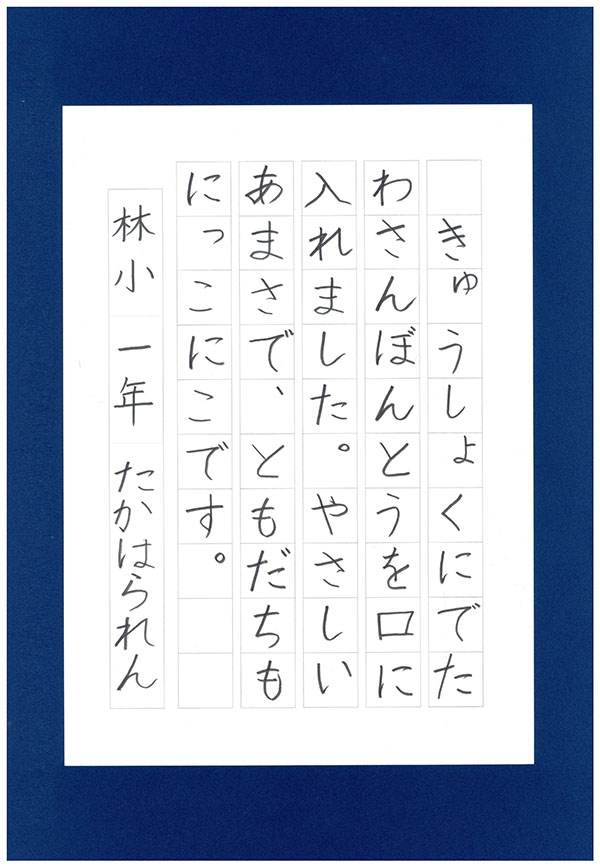 きゅうしょくにでた
わさんぼんとうを口に
入れました。やさしい
あまさで、ともだちも
にっこにこです。
林小 一年 たかはられん